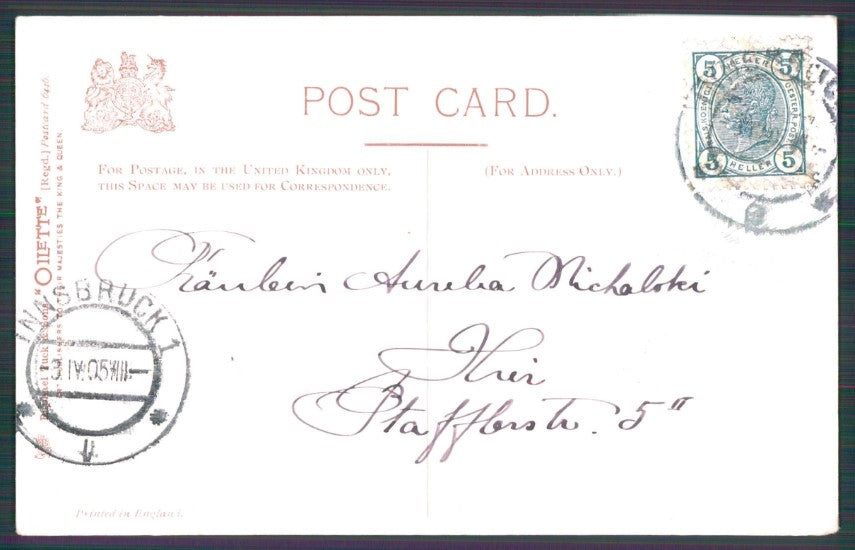 POST CARD.
For Postage, in the United Kingdom only, this Space may be used for Correspondence.
(For Address Only.)
5 HELLER 5
5 HELLER 5
Fräulein Aurelia Michalski
Hier
Stafflerstr. 5"
INNSBRUCK 1
3.IV.05
"OILETTE" [Regd.] Postcard
MAJESTIES THE KING & QUEEN.
Printed in England.